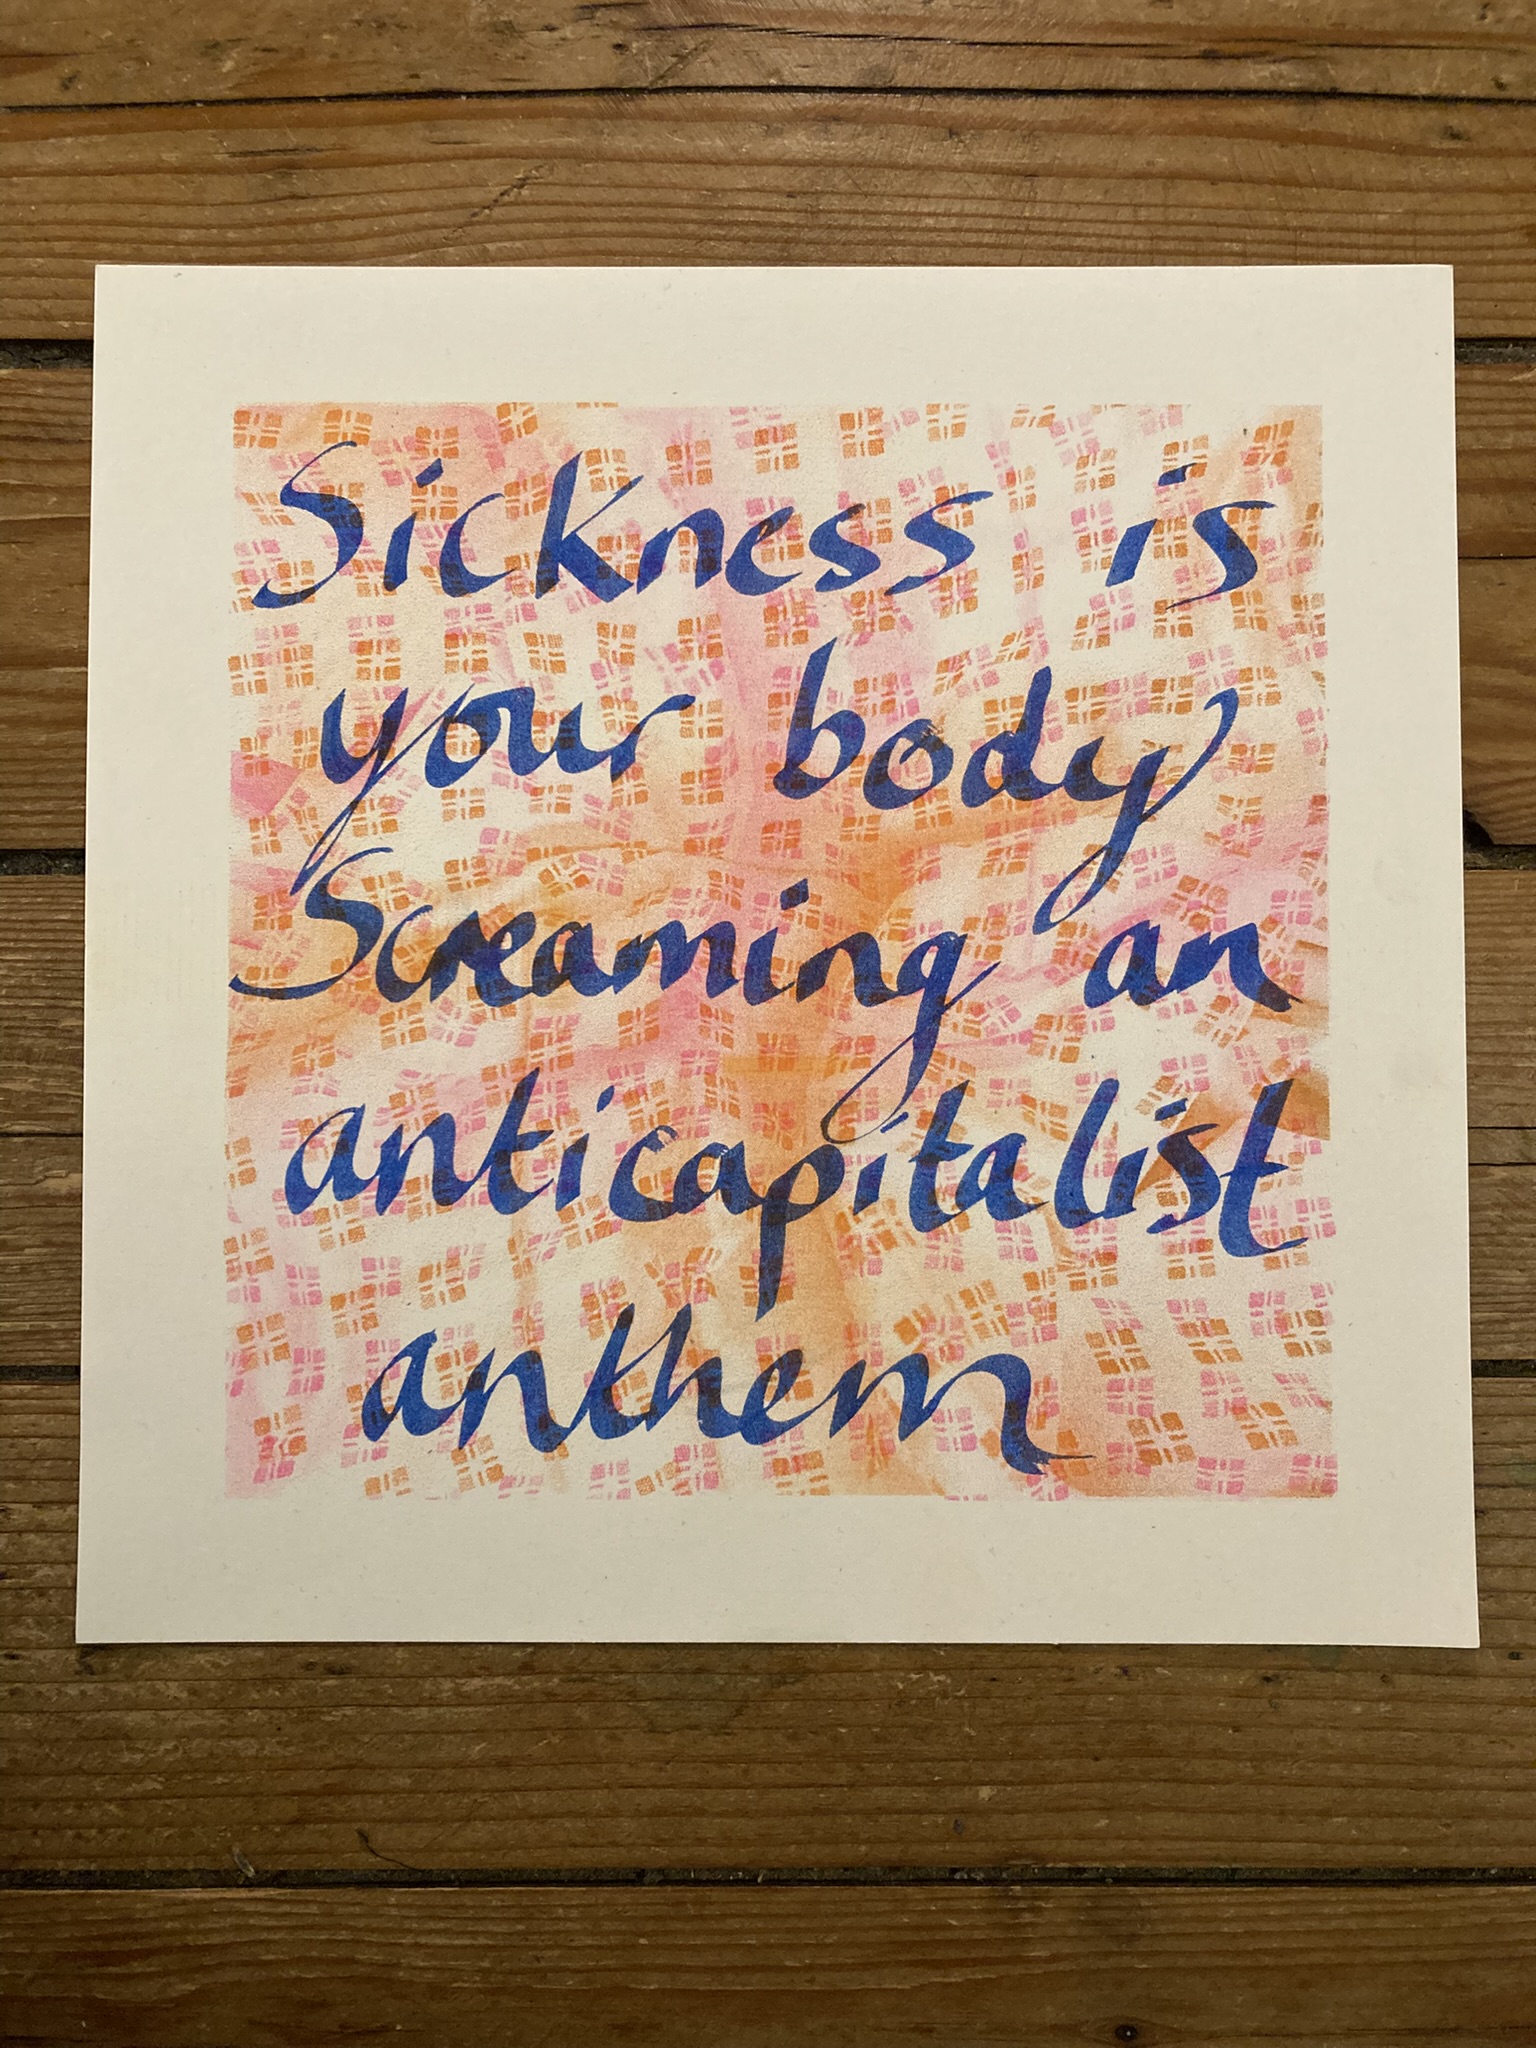 Sickness is
your body
Screaming an
anticapitalist
anthem